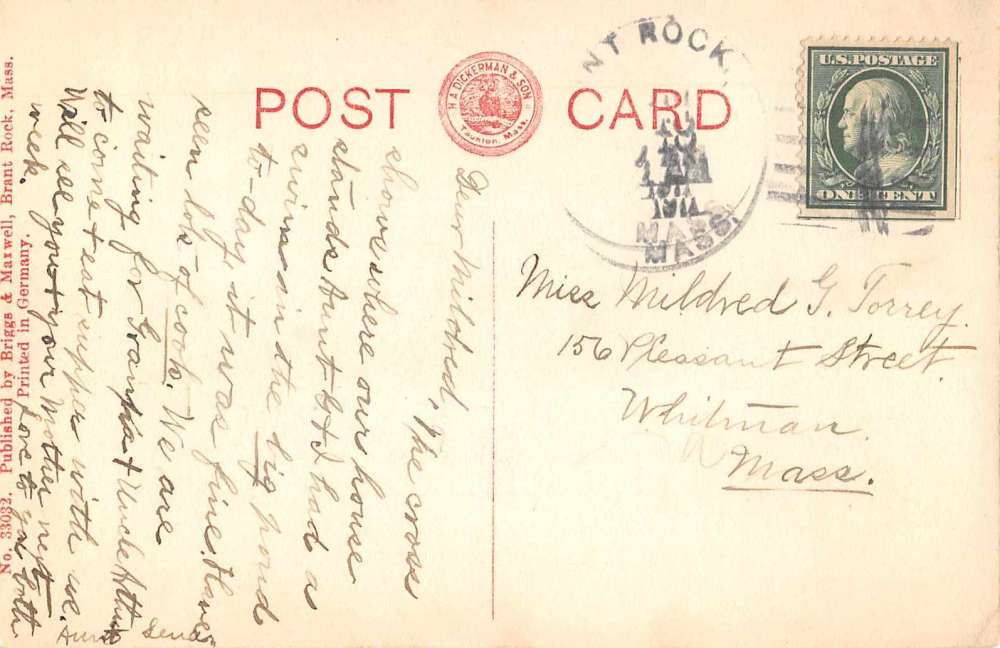 POST CARD
H A DICKERMAN & SON
Taunton, Mass.
NT ROCK.
1911
MASS.
U.S. POSTAGE
ONE CENT
Miss Mildred G. Torrey.
156 Pleasant Street.
Whitman.
Mass.
Dear Mildred, The cross
shows where our house
stands. Aunt G & I had a
swim in the big pond
to-day, it was fine. Have
seen lots of cook. We are
waiting for Grampa & Uncle Arthur
to come & eat supper with us.
Will see you & your Mother next
week. Love to you both
Aunt Lena.
No. 33032. Published by Briggs & Maxwell, Brant Rock, Mass.
Printed in Germany.